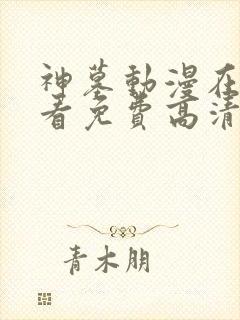 神墓動漫在
看免費高清
青木朋